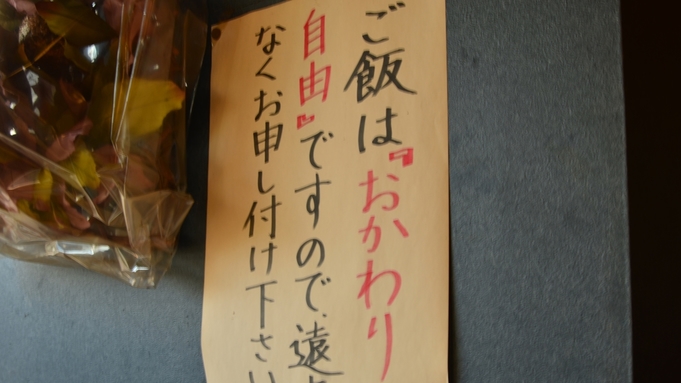 ご飯は『おかわり
自由』ですので、遠
なくお申し付け下さい